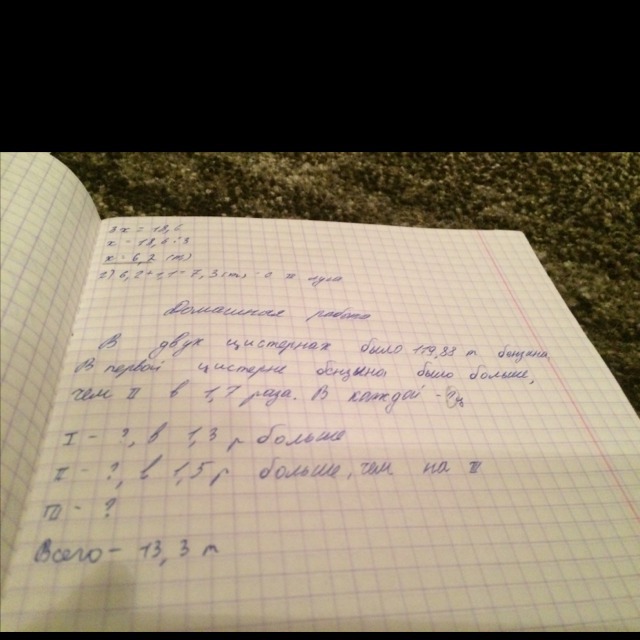 3x = 18,6
x = 18,6 : 3
x = 6,2 (т)
2) 6,2 + 1,1 = 7,3 (т) - с III луга
Домашная работа
В двух цистернах было 119,88 т бензина
В первой цистерне бензина было больше,
чем II в 1,7 раза. В каждой - ?
I - ?, в 1,3 р больше
II - ?, в 1,5 р больше, чем на III
III - ?
Всего - 13,3 т